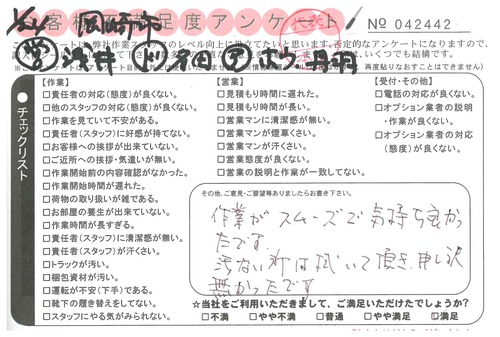 お客様満足度アンケート
No 042442
岡崎市
このアンケートは弊社作業スタッフのレベル向上に役立てたいと思います。否定的なアンケートになりますので、
いくつでも結構です。
再度貼りなおすことはできません)
浅井
チェックリスト
【作業】
□責任者の対応(態度)が良くない。
□他のスタッフの対応(態度)が良くない。
□作業を見ていて不安がある。
□責任者(スタッフ)に好感が持てない。
□お客様への挨拶が出来ていない。
□ご近所への挨拶・気遣いが無い。
□作業開始前の内容確認がなかった。
□作業開始時間が遅れた。
□荷物の取り扱いが雑である。
□お部屋の養生が出来ていない。
□作業時間が長すぎる。
□責任者(スタッフ)に清潔感が無い。
□責任者(スタッフ)が汗くさい。
□トラックが汚い。
□梱包資材が汚い。
□運転が不安(下手)である。
□靴下の履き替えをしてない。
□スタッフにやる気がみられない。
【営業】
□見積もり時間に遅れた。
□見積もり時間が長い。
□営業マンに清潔感が無い。
□営業マンが煙草くさい。
□営業マンが汗くさい。
□営業態度が良くない。
□営業の説明と作業が一致してない。
【受付・その他】
□電話の対応が良くない。
□オプション業者の説明
・作業が良くない。
□オプション業者の対応
(態度)が良くない。
その他、ご意見・ご要望等ありましたらお書き下さい。
作業がスムーズで気持ち良かっ
たです。
汚ない所は拭いて頂き、申し訳
無かったです
☆当社をご利用いただきまして、ご満足いただけたでしょうか?
□不満 □やや不満 □普通 □やや満足 □満足